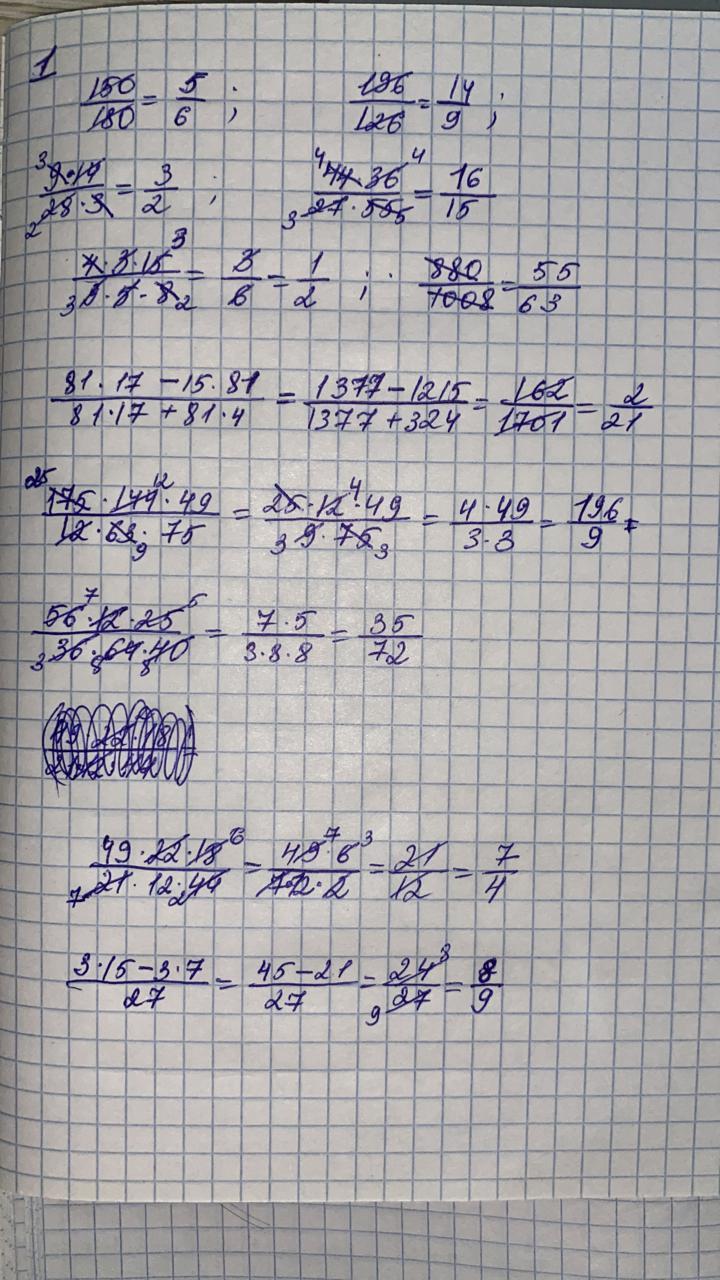 1
150/180 = 5/6 ; 196/126 = 14/9 ;
9·14/28·3 = 3/2 ; 44·36/27·55 = 16/15
4·3·15/9·5·8 = 3/6 = 1/2 ; 880/1008 = 55/63
81·17 − 15·81/81·17 + 81·4 = 1377 − 1215/1377 + 324 = 162/1701 = 2/21
175·144·49/12·63·75 = 25·12·49/9·75 = 4·49/3·3 = 196/9 =
56·12·25/36·64·40 = 7·5/3·8·8 = 35/72
49·22·18/21·12·44 = 49·6/72·2 = 21/12 = 7/4
3·15 − 3·7/27 = 45 − 21/27 = 24/27 = 8/9